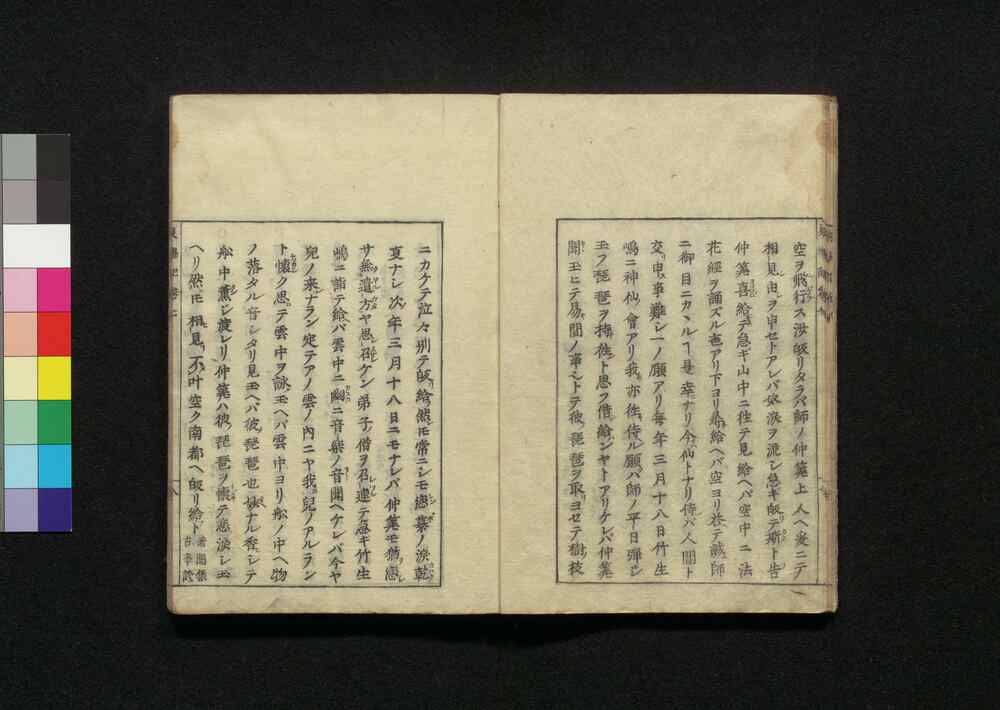 空ヲ飛行ス汝皈リタラバ師ノ仲筭上人ヘ爰ニテ
相見由ヲ申セトアレバ奴淚ヲ流シ急ギ皈テ斯ト告
仲筭喜給テ急ギ山中ニ往テ見給ヘバ空中ニ法
花經ヲ誦ズル声アリ下ヨリ給ヘバ空ヨリ答テ誠師
ニ御目ニカヽルヿ是幸ナリ今仙トナリ侍バ人間ト
交申事難シ一ノ願アリ每年三月十八日竹生
嶋ニ神仙會アリ我亦往侍ル願バ師ノ平日彈シ
玉フ琵琶ヲ持往ト思フ借給ンヤトアリケレバ仲筭
聞玉ヒテ易間ノ事シトテ彼琵琶ヲ取ヨセテ樹枝
ニカケテ泣々別テ皈給然𪜈常ニシモ戀慕ノ淚乾
夏ナシ次年三月十八日ニモナレバ仲筭モ猶戀
サ無遣方ヤ思召ケン弟子僧ヲ召連テ急ギ竹生
嶋ニ詣テ給バ雲中ニ幽ニ音樂ノ音聞ヘケレバ今ヤ
兒ノ来ナラン定テアノ雲ノ内ニヤ我兒ノアルラン
ト懷ク思テ雲中ヲ詠玉ヘバ雲中ヨリ舩ノ中ヘ物
ノ落タル音シタリ見玉ヘバ彼琵琶也妙ナル香シテ
舩中薰シ渡レリ仲筭ハ彼琵琶ヲ懷テ悲淚シ玉
ヘリ然𪜈相見不叶空ク南都ヘ皈リ給ト
著聞集
古事談